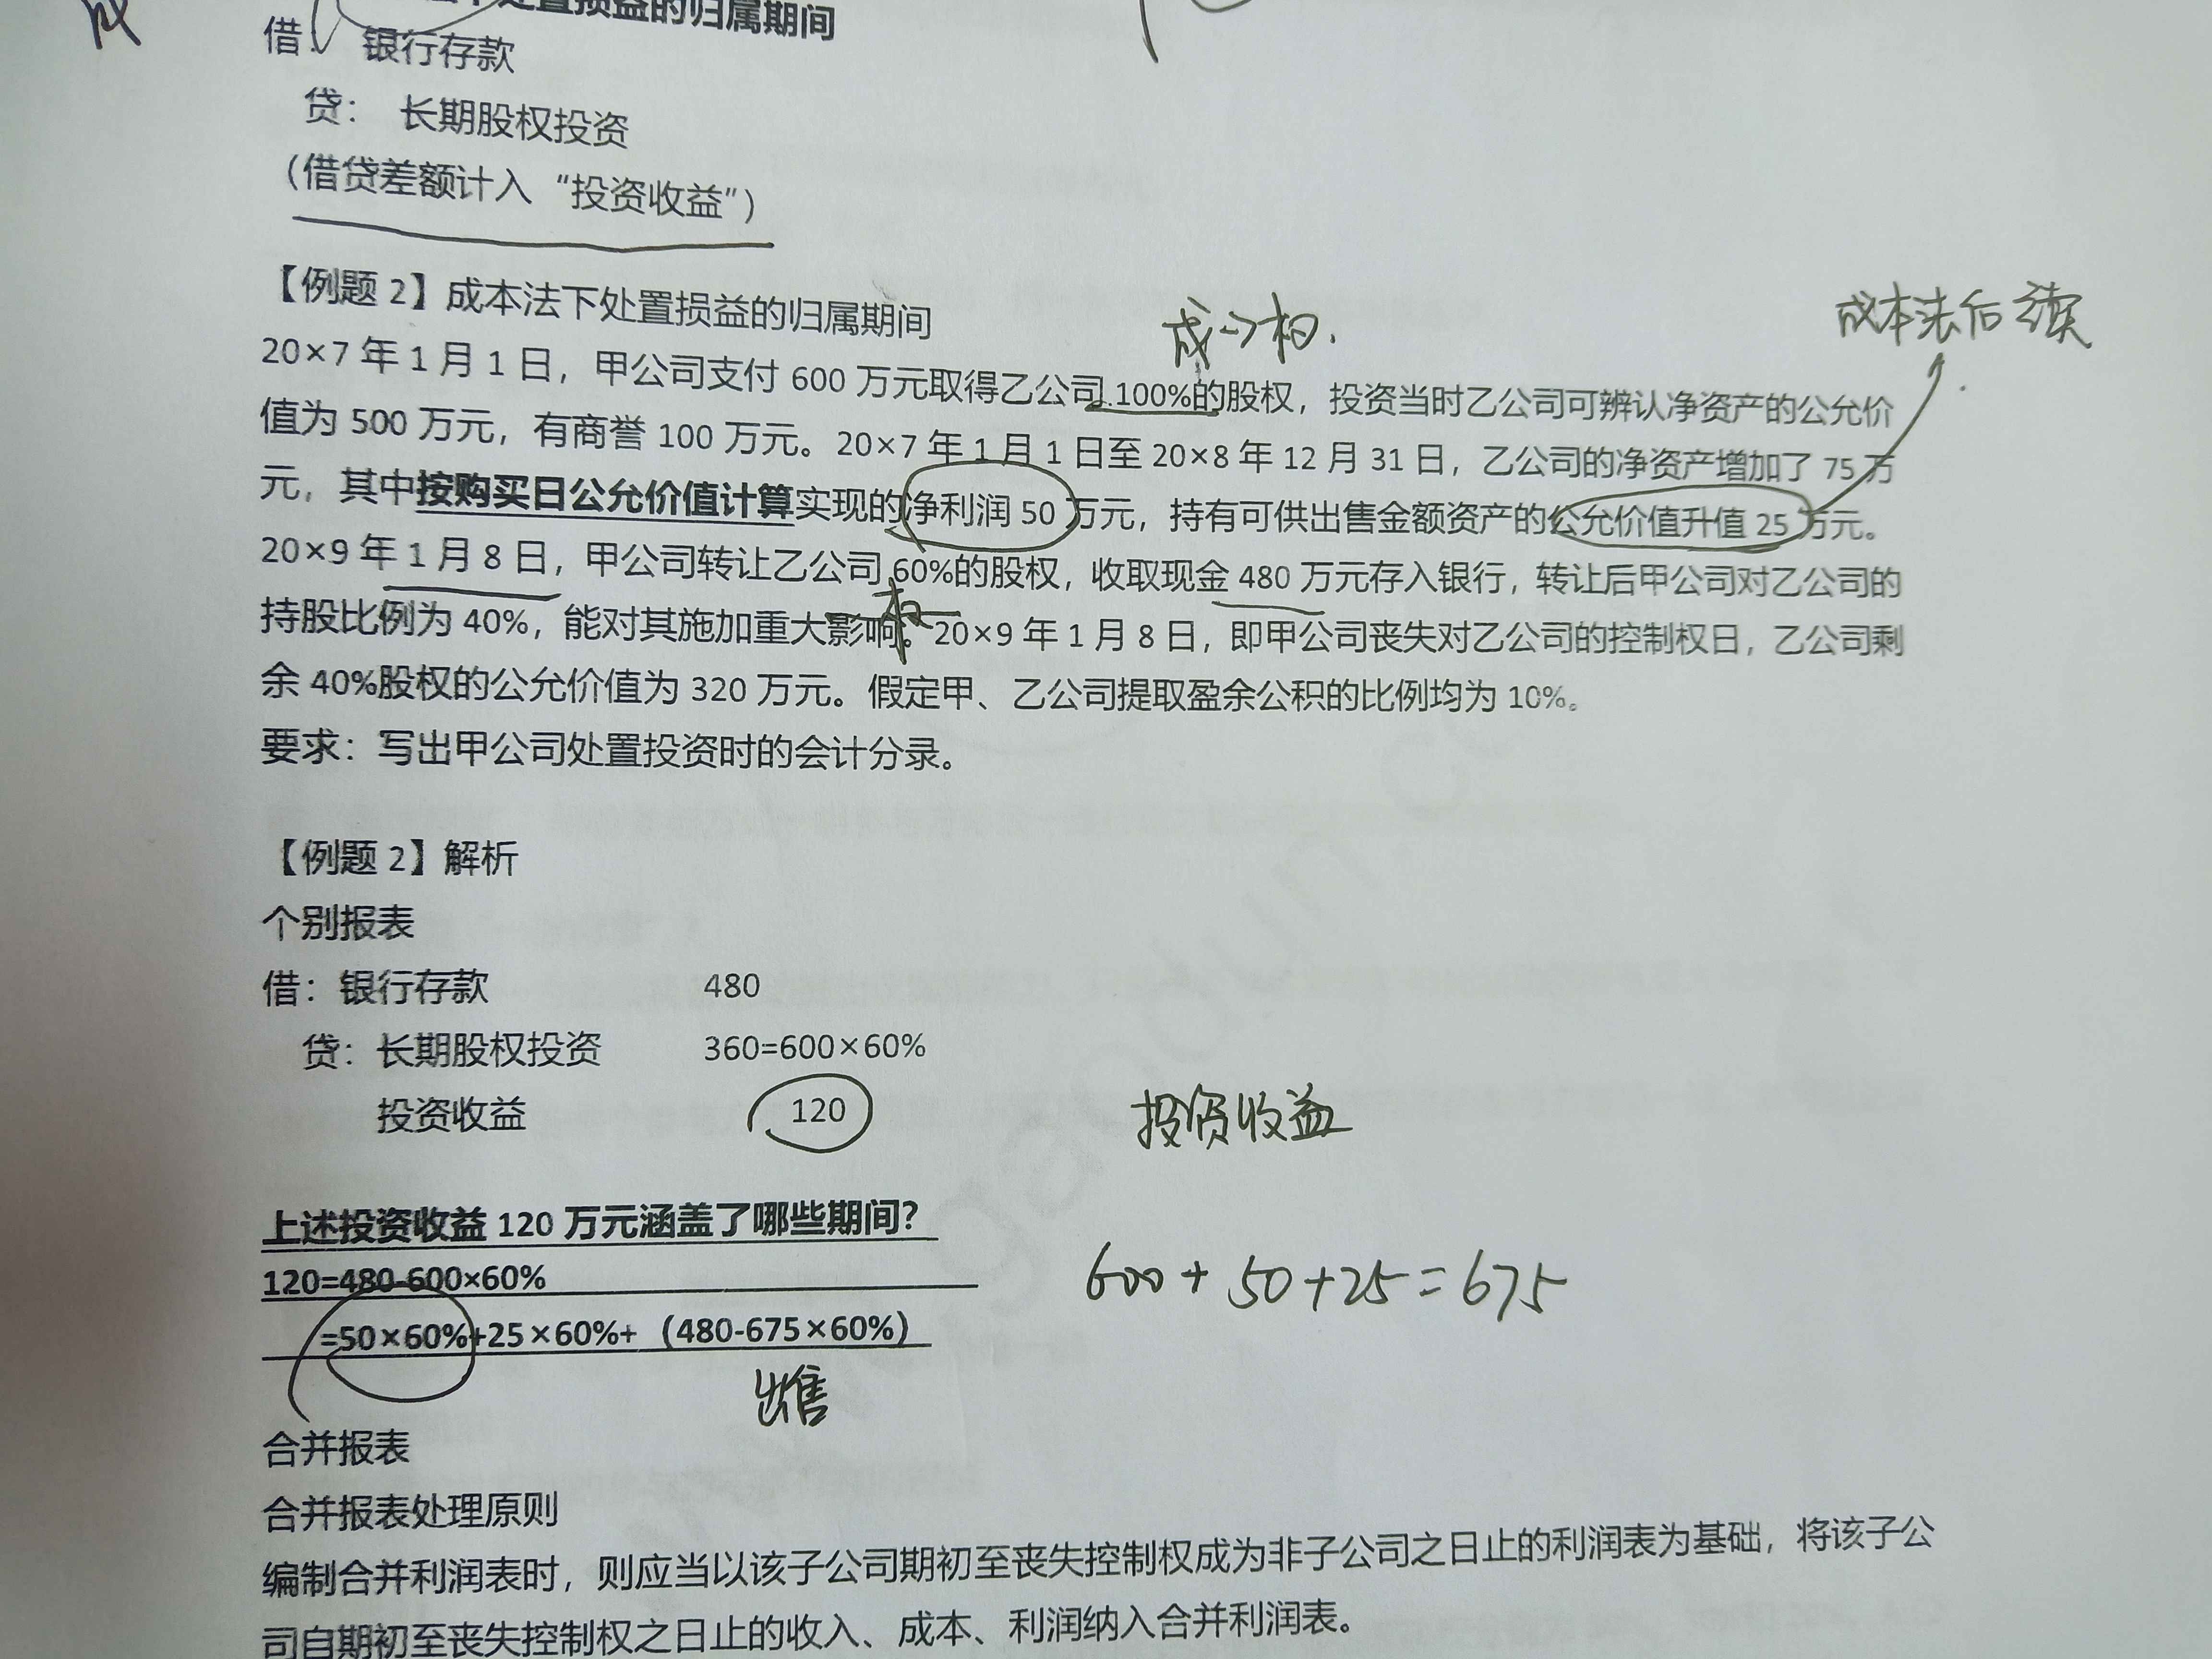 处置损益的归属期间
借： 银行存款
贷： 长期股权投资
（借贷差额计入“投资收益”）
【例题 2】成本法下处置损益的归属期间
成→权.
成本法后续
20×7 年 1 月 1 日，甲公司支付 600 万元取得乙公司 100%的股权，投资当时乙公司可辨认净资产的公允价
值为 500 万元，有商誉 100 万元。20×7 年 1 月 1 日至 20×8 年 12 月 31 日，乙公司的净资产增加了 75 万
元，其中按购买日公允价值计算实现的净利润 50 万元，持有可供出售金额资产的公允价值升值 25 万元。
20×9 年 1 月 8 日，甲公司转让乙公司 60%的股权，收取现金 480 万元存入银行，转让后甲公司对乙公司的
持股比例为 40%，能对其施加重大影响。20×9 年 1 月 8 日，即甲公司丧失对乙公司的控制权日，乙公司剩
余 40%股权的公允价值为 320 万元。假定甲、乙公司提取盈余公积的比例均为 10%。
要求：写出甲公司处置投资时的会计分录。
【例题 2】解析
个别报表
借：银行存款 480
贷：长期股权投资 360=600×60%
投资收益 120
投资收益
上述投资收益 120 万元涵盖了哪些期间？
120=480-600×60%
600+50+25=675
=50×60%+25×60%+（480-675×60%）
出售
合并报表
合并报表处理原则
编制合并利润表时，则应当以该子公司期初至丧失控制权成为非子公司之日止的利润表为基础，将该子公
司自期初至丧失控制权之日止的收入、成本、利润纳入合并利润表。